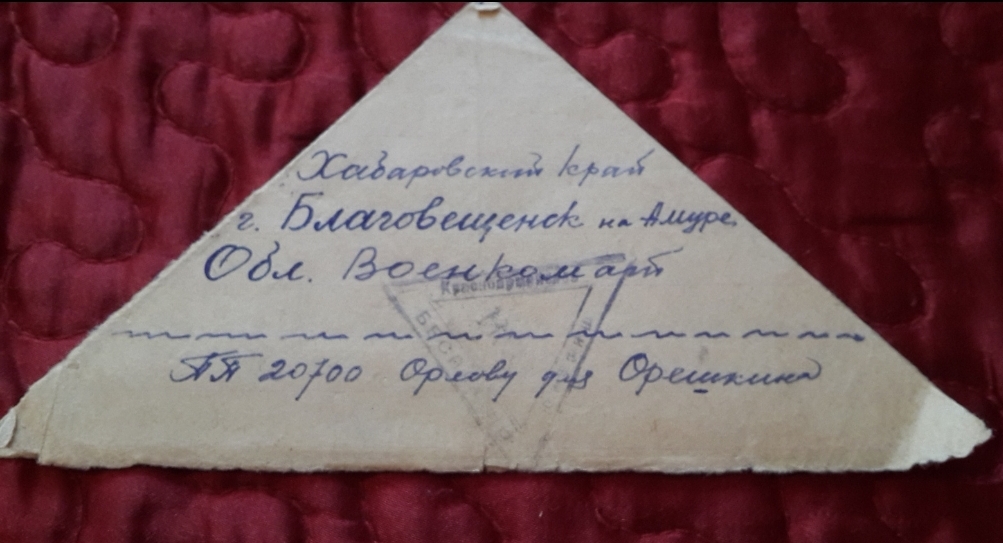 Хабаровский край
г. Благовещенск на Амуре
Обл. Военкомат
Красноармейское
БЕСПЛАТНО
ПП 20700 Орлову для Орешкина